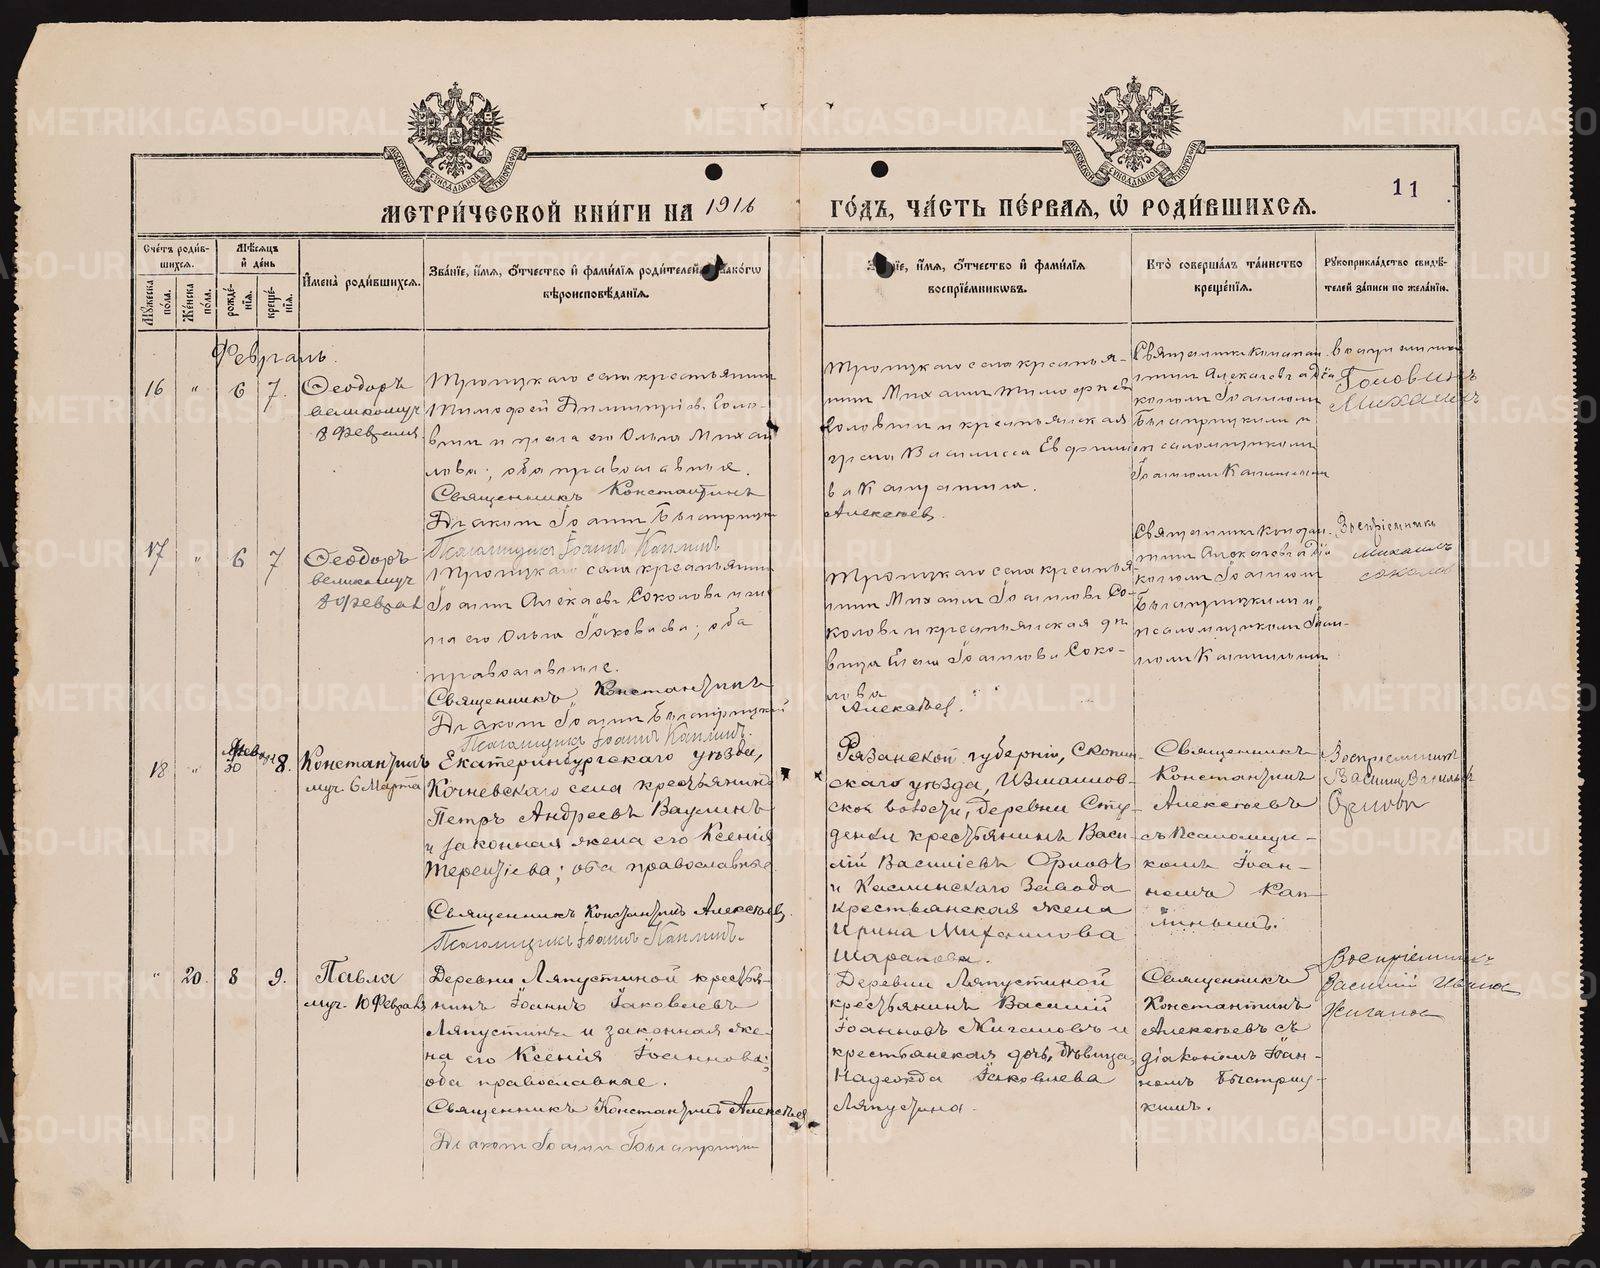 МЕТРИ́ЧЕСКОЙ КНИ́ГИ НА 1916
ГО́ДЪ, ЧА́СТЬ ПЕ́РВАЯ, Ѡ РОДИ́ВШИХСЯ.
11
Сче́тъ роди́в-
шихся.
Мѣ́сяцъ
и҆ де́нь
Мꙋ́жеска
по́ла.
Же́нска
по́ла.
рожде́-
нїя.
креще́-
нїя.
И҆мена̀ роди́вшихся.
Зва́нїе, и҆́мя, ѻ҆́тчество и҆ фами́лїя роди́телей
вѣроисповѣ́данїя.
и҆́мя, ѻ҆́тчество и҆ фами́лїя
воспрїе́мникѡвъ.
Кто̀ соверша́лъ та́инство
креще́нїя.
Рꙋкоприкла́дство свидѣ́-
телей за́писи по жела́нїю.
Февраль.
16 " 6 7.
Ѳеодоръ
великомуч
8 Февраля
Троицкаго села крестьянин
Тимофей Димитріев. Голо-
вин и жена его Ольга Михаи
лова; оба православные.
Священникъ Константинъ
Диакон Іоанн Быстрицк
Псаломщикъ Іоаннъ Каплинъ
Троицкаго села крестья-
нин Михаил Тимофеев
Головин и крестьянская
Василисса Евфими
Алексѣев.
Священник Констан-
тин Алексѣев
коном Іоанном
Быстрицким и
псаломщиком
Іоанном Каплиным
Головинъ
Михаилъ
17 " 6 7
Ѳеодоръ
великомуч
8 Феврал
Троицкаго села крестьянин
Іоанн Алексѣев Соколов и же
на его Ольга Іаковлева; оба
православные.
Священникъ Константинъ
Диакон Іоанн Быстрицкий
Псаломщикъ Іоаннъ Каплинъ.
Троицкаго села крестья-
нин Михаил Іоаннов Со-
колов и крестьянская дѣ
вица Елена Іоаннова Соко-
лова
Алексѣев.
Священник Констан-
тин Алексѣев
коном Іоанном
Быстрицким и
псаломщиком Іоан-
ном Каплиным
Воспріемникъ
Михаилъ
Соколов
18 " 30 8.
Константинъ
муч. 6 Марта
Екатеринбургскаго уѣзда,
Кочневскаго села крестьянинъ
Петръ Андреевъ Ваулинъ
и законная жена его Ксенія
Терентіева; оба православные
Священникъ Константинъ Алексѣевъ
Псаломщикъ Іоаннъ Каплинъ.
Рязанской губерніи, Скопин
скаго уѣзда, Измаилов-
ской волости, деревни Сту-
денки крестьянинъ Васи-
лій Василіевъ Орловъ
и Каслинскаго Завода
крестьянская жена
Ирина Михаилова
Шарапова.
Священникъ
Константинъ
Алексѣевъ
съ Псаломщи-
комъ Іоан-
номъ Кап-
линымъ.
Воспріемникъ
Василій Васильев
Орловъ
" 20. 8 9.
Павла
муч. 10 Февраля
Деревни Ляпустиной крестья-
нинъ Іоаннъ Іаковлевъ
Ляпустинъ и законная же-
на его Ксенія Іоаннова;
оба православные.
Священникъ Константинъ Алексѣевъ
Диакон Іоанн Быстрицк
Деревни Ляпустиной
крестьянинъ Василій
Іоанновъ Жигаловъ и
крестьянская дочь, дѣвица
Надежда Іаковлева
Ляпустина.
Священникъ
Константинъ
Алексѣевъ съ
діакономъ Іоан-
номъ Быстриц-
кимъ.
Воспріемник
Василій Ивано
Жигалов